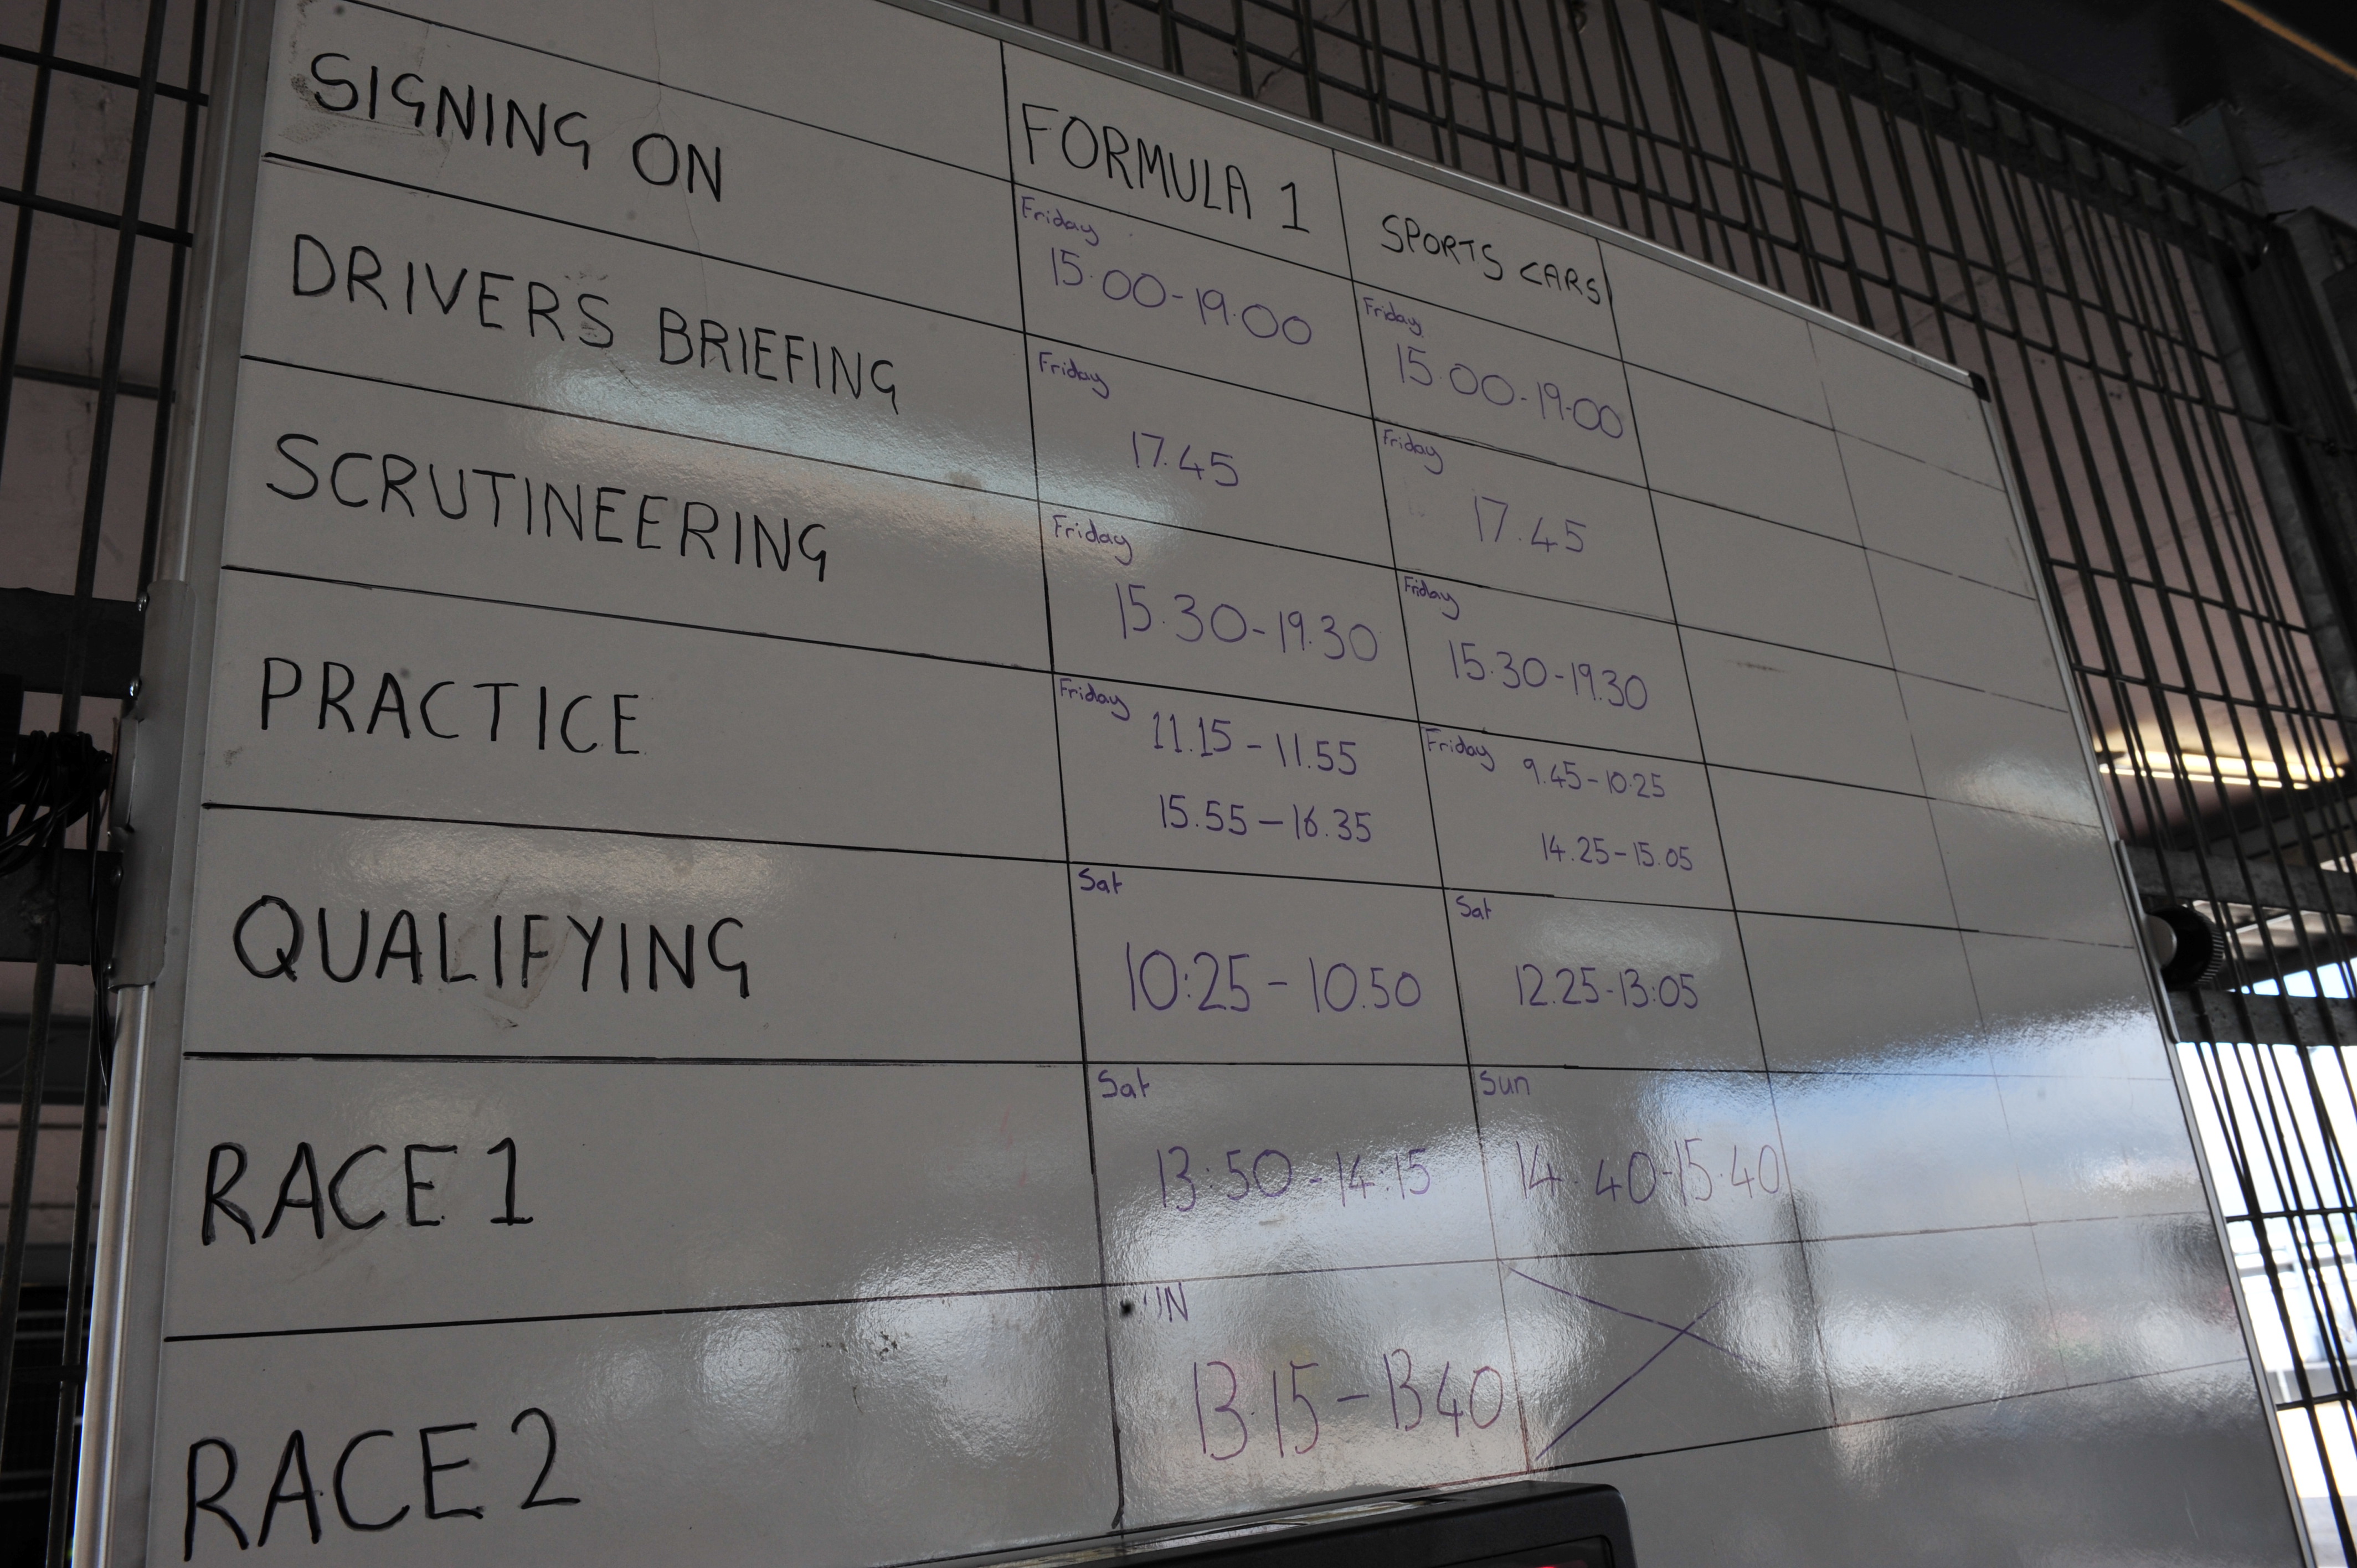 FORMULA 1 SPORTS CARS
SIGNING ON Friday 15.00-19.00 Friday 15.00-19.00
DRIVERS BRIEFING Friday 17.45 Friday 17.45
SCRUTINEERING Friday 15.30-19.30 Friday 15.30-19.30
PRACTICE Friday 11.15-11.55 Friday 9.45-10.25
15.55-16.35 14.25-15.05
QUALIFYING Sat 10:25-10.50 Sat 12.25-13:05
RACE 1 Sat 13:50-14:15 Sun 14.40-15.40
RACE 2 13.15-1340